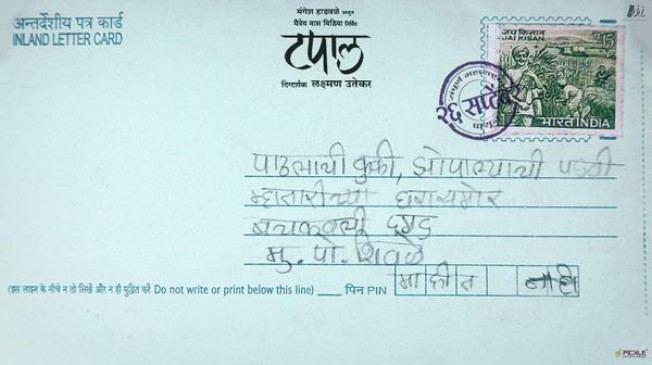 अन्तर्देशीय पत्र कार्ड
INLAND LETTER CARD
मंगेश हाडवळे प्रस्तुत
मैत्रेय मास मिडिया निर्मित
टपाल
दिग्दर्शक लक्ष्मण उतेकर
जय किसान
JAI KISAN
15
भारत INDIA
संपूर्ण महाराष्ट्रात
२६ सप्टेंबर
पासून
म्हातारीच्या घरासमोर
मु. पो. शिवळे
(इस लाइन के नीचे न तो लिखें और न ही मुद्रित करें Do not write or print below this line) पिन PIN माहीत नाही
PICKLE